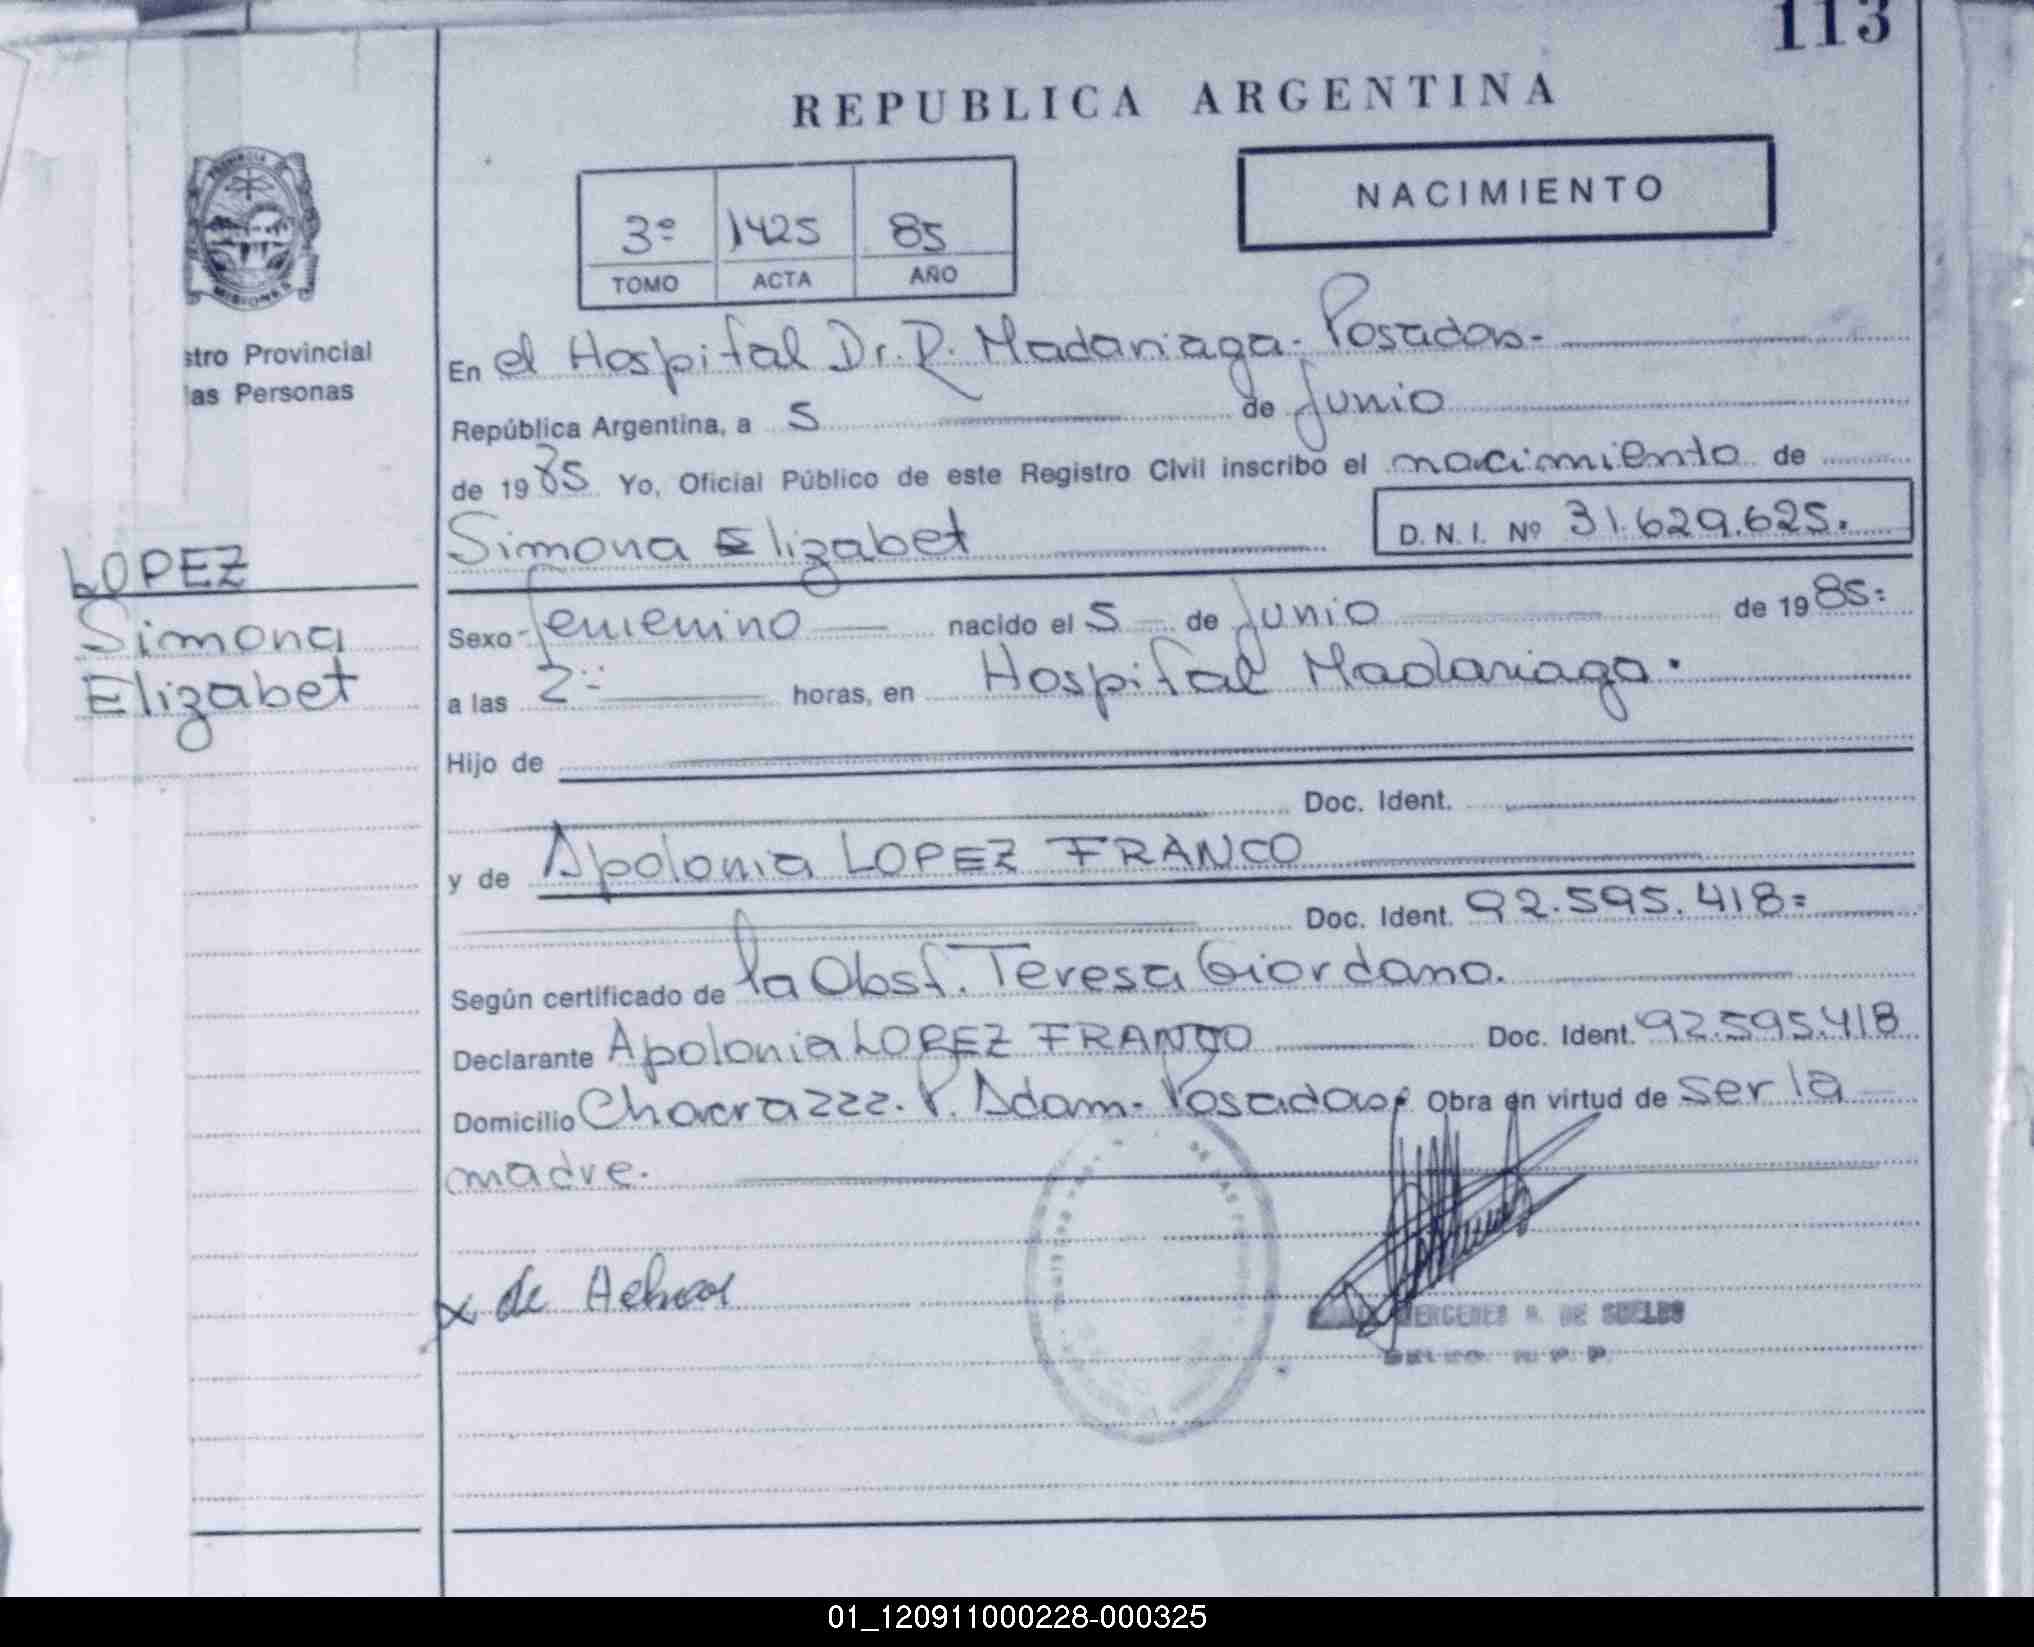 113
REPUBLICA ARGENTINA
NACIMIENTO
3º 1425 85
TOMO ACTA AÑO
PROVINCIA
MISIONES
stro Provincial
las Personas
LOPEZ
Simona
Elizabet
En el Hospital Dr. R. Madariaga - Posadas -
República Argentina, a 5 de Junio
de 1985 Yo, Oficial Público de este Registro Civil inscribo el nacimiento de
Simona Elizabet D. N. I. Nº 31.629.625.
Sexo femenino nacido el 5 de Junio de 1985:
a las 2 horas, en Hospital Madariaga.
Hijo de
Doc. Ident.
y de Apolonia LOPEZ FRANCO
Doc. Ident. 92.595.418=
Según certificado de la Obst. Teresa Giordano.
Declarante Apolonia LOPEZ FRANCO Doc. Ident. 92.595.418
Domicilio Chacra 222. P. Adam - Posadas. Obra en virtud de ser la
madre.
x de
DE SUELDO
R. P. P.
01_120911000228-000325